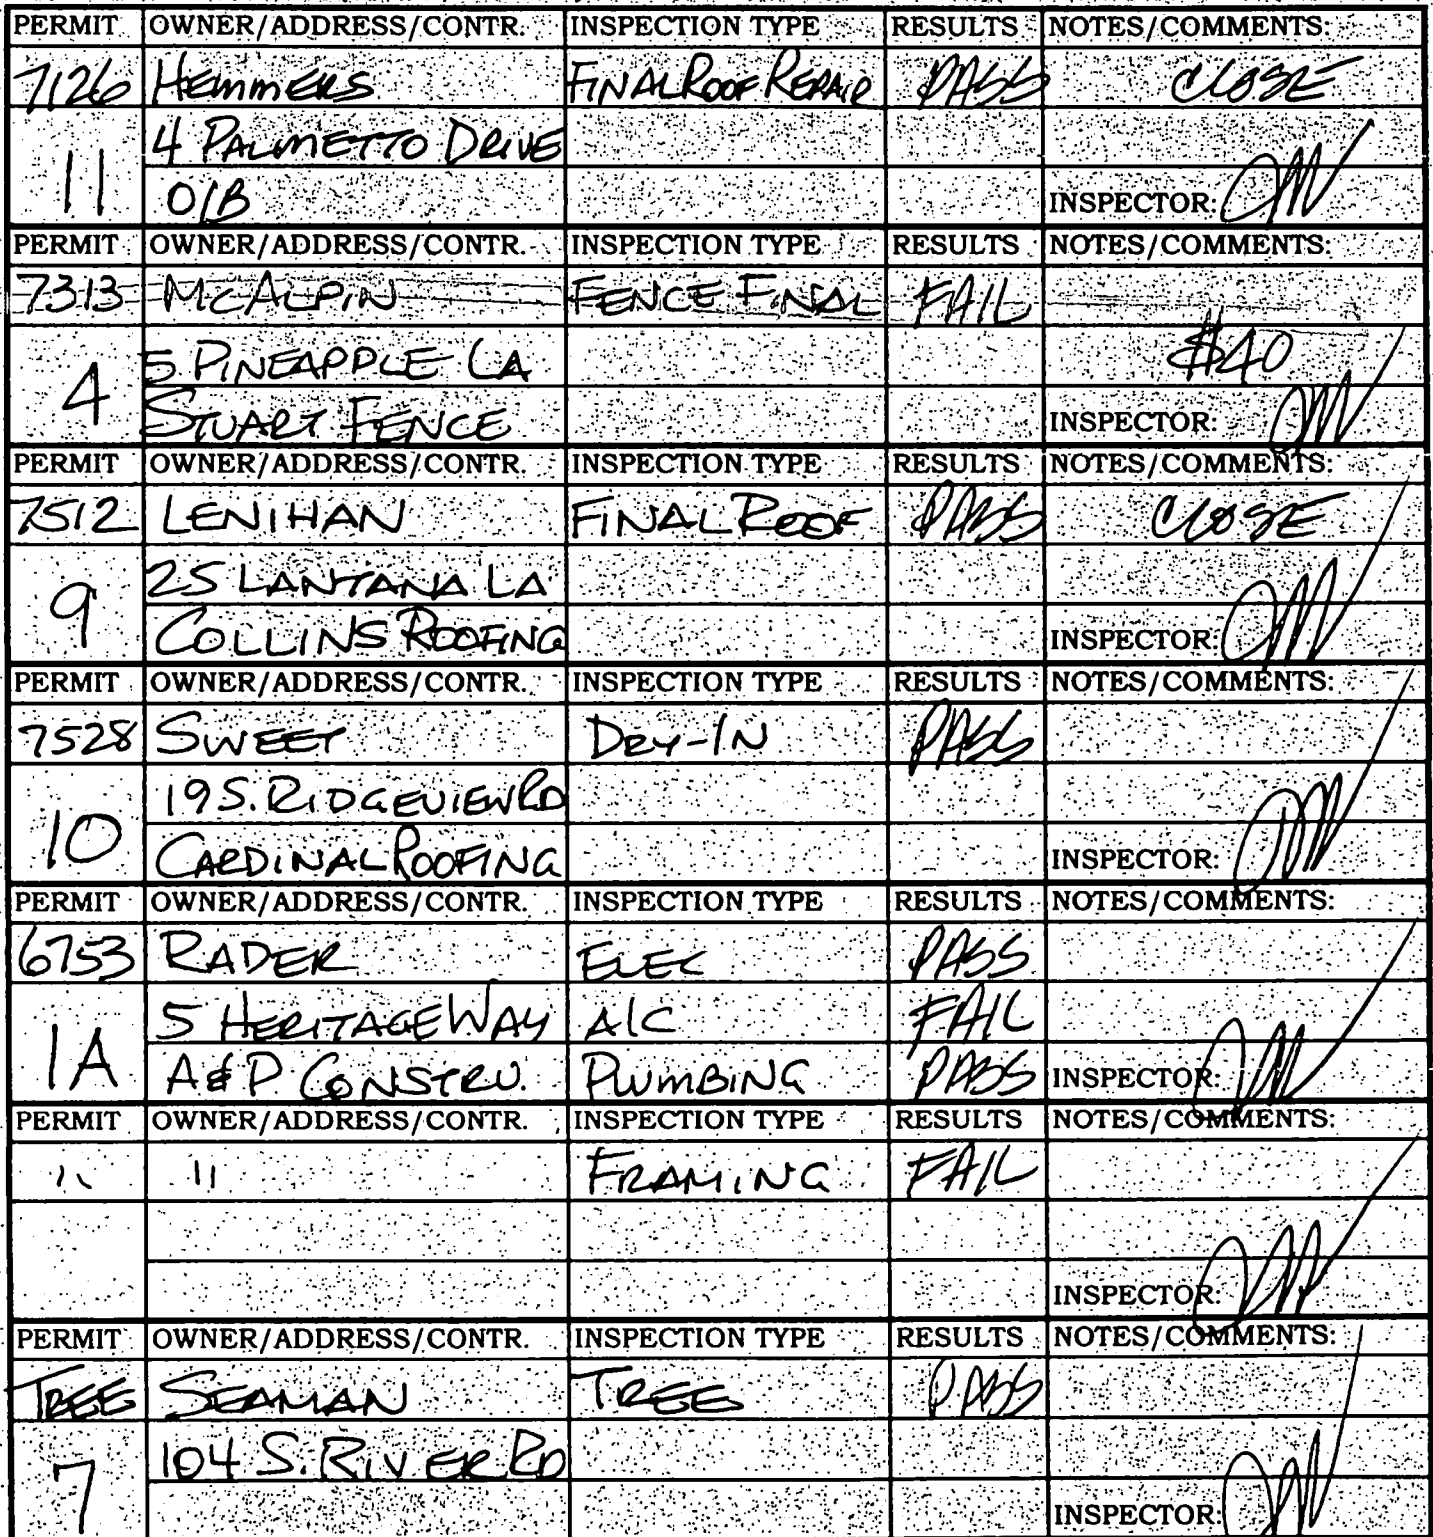 PERMIT OWNER/ADDRESS/CONTR. INSPECTION TYPE RESULTS NOTES/COMMENTS:
7126 HEMMERS FINAL ROOF REPAIR PASS CLOSE
4 PALMETTO DRIVE
11
O/B INSPECTOR:
PERMIT OWNER/ADDRESS/CONTR. INSPECTION TYPE RESULTS NOTES/COMMENTS:
7313 MCALPIN FENCE FINAL FAIL
5 PINEAPPLE LA $40
4
STUART FENCE INSPECTOR:
PERMIT OWNER/ADDRESS/CONTR. INSPECTION TYPE RESULTS NOTES/COMMENTS:
7512 LENIHAN FINAL ROOF PASS CLOSE
25 LANTANA LA
9
COLLINS ROOFING INSPECTOR:
PERMIT OWNER/ADDRESS/CONTR. INSPECTION TYPE RESULTS NOTES/COMMENTS:
7528 SWEET DRY-IN PASS
19 S. RIDGEVIEW RD
10
CARDINAL ROOFING INSPECTOR:
PERMIT OWNER/ADDRESS/CONTR. INSPECTION TYPE RESULTS NOTES/COMMENTS:
6753 RADER ELEC PASS
5 HERITAGE WAY A/C FAIL
1A
A & P CONSTRU. PLUMBING PASS INSPECTOR:
PERMIT OWNER/ADDRESS/CONTR. INSPECTION TYPE RESULTS NOTES/COMMENTS:
" " FRAMING FAIL
INSPECTOR:
PERMIT OWNER/ADDRESS/CONTR. INSPECTION TYPE RESULTS NOTES/COMMENTS:
TREE SEAMAN TREE PASS
104 S. RIVER RD
7
INSPECTOR: